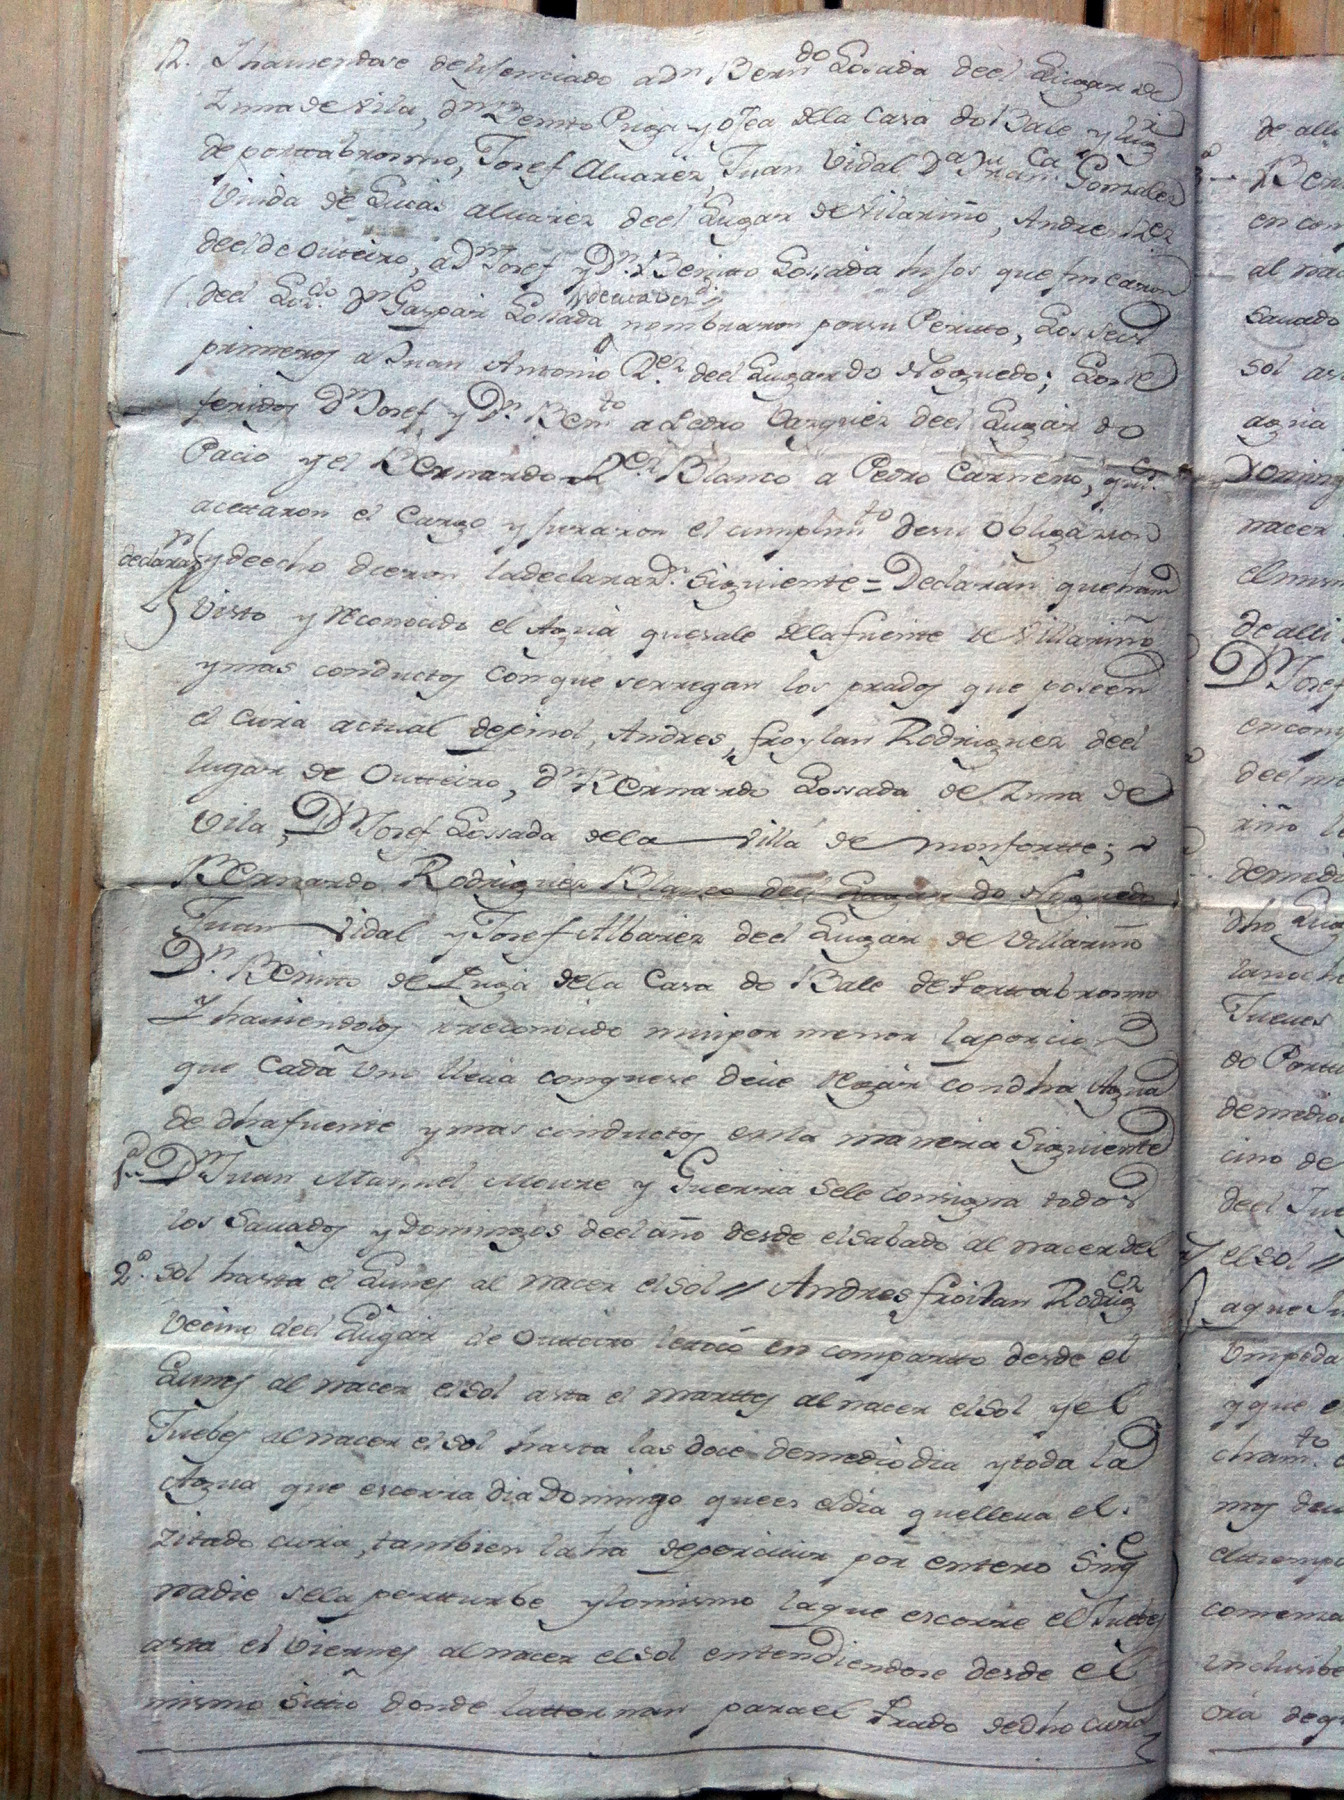 12. Y haviendose defenciado a Dn Berndo Losada deel Lugar de
Zima de Vila, Dn Benito Puga y ojea della Casa do Bale y luz
de portabromo, Josef Alvarez, Juan Vidal Da Franca Gonzalez
Viuda de Lucas Alvarez deel Lugar de Vilariño, Andres Rez
deel de Outeiro, a Dn Josef y Dn Benito Lossada hijos que fincaron
del Dn Gaspar Lossada nombraron por su Perito, Los seis
primeros a Juan Antonio Rez deel Lugar do Noguedo; Los re
feridos Dn Josef, y Dn Bento a Pedro Vazquez deel Lugar do
Pacio y el Bernardo Rez Blanco a Pedro Carnero, quies
acettaron el Cargo y juraron el cumplimto de su obligazion
declaraon y de echo dieron la declarazn. Siguiente = Declaran que han
Visto y reconocido el Agua que sale della fuente de Villariño
y mas conductos con que se rregan los prados que poseen
el Cura actual de pinol, Andres froylan Rodriguez deel
lugar de Outteiro, Dn Bernardo Lossada de Zima de
Vila, Dn Josef Lossada de la Villa de Monfortte;
Bernardo Rodriguez Blanco deel Lugar do Noguedo
Juan Vidal y Josef Albarez deel Lugar de Villariño
Dn. Benitto de Puga de la Casa do Bale de Portabromo
Y haviendolos rreconocido mui por menor la porcion
que Cada uno lleva con que se deve Regar con dha Agua
de dha fuente y mas conductos en la manera Siguiente
1a Dn Juan Manuel Moure y Guerra Se le Consigna todos
los Savados y Domingos deel año desde el sabado al nacer del
2a. Sol hasta el Lunes al nacer el sol // Andres froilan Rodriguez
Vecino deel Lugar de Outteiro le tocó en compartto desde el
Lunes al nacer el sol asta el marttes al nacer el sol y el
Juebes al nacer el sol hasta las doce de medio dia y toda la
Agua que escorra dia Domingo que es el dia que lleva el
zitado cura, tambien la ha de percivir por entero Sin q
nadie se la pertturbe y lo mismo la que escorre el Juebes
asta el viernes al nacer el sol entendiendose desde el
mismo Sittio donde la ttornan para el Prado de dho Cura
de alli
Ber
en com
al na
Savado
sol as
agua
Doming
nacer
el mism
de alli
Dn Josef
en com
deel m
riño
de medi
dho Lug
la noch
Jueves
do Portt
de medio
cino de
deel Jue
el sol //
agua
Ympeda
y que e
cham.to
mos de
el tiemp
comenza
inclusibe
ora de q